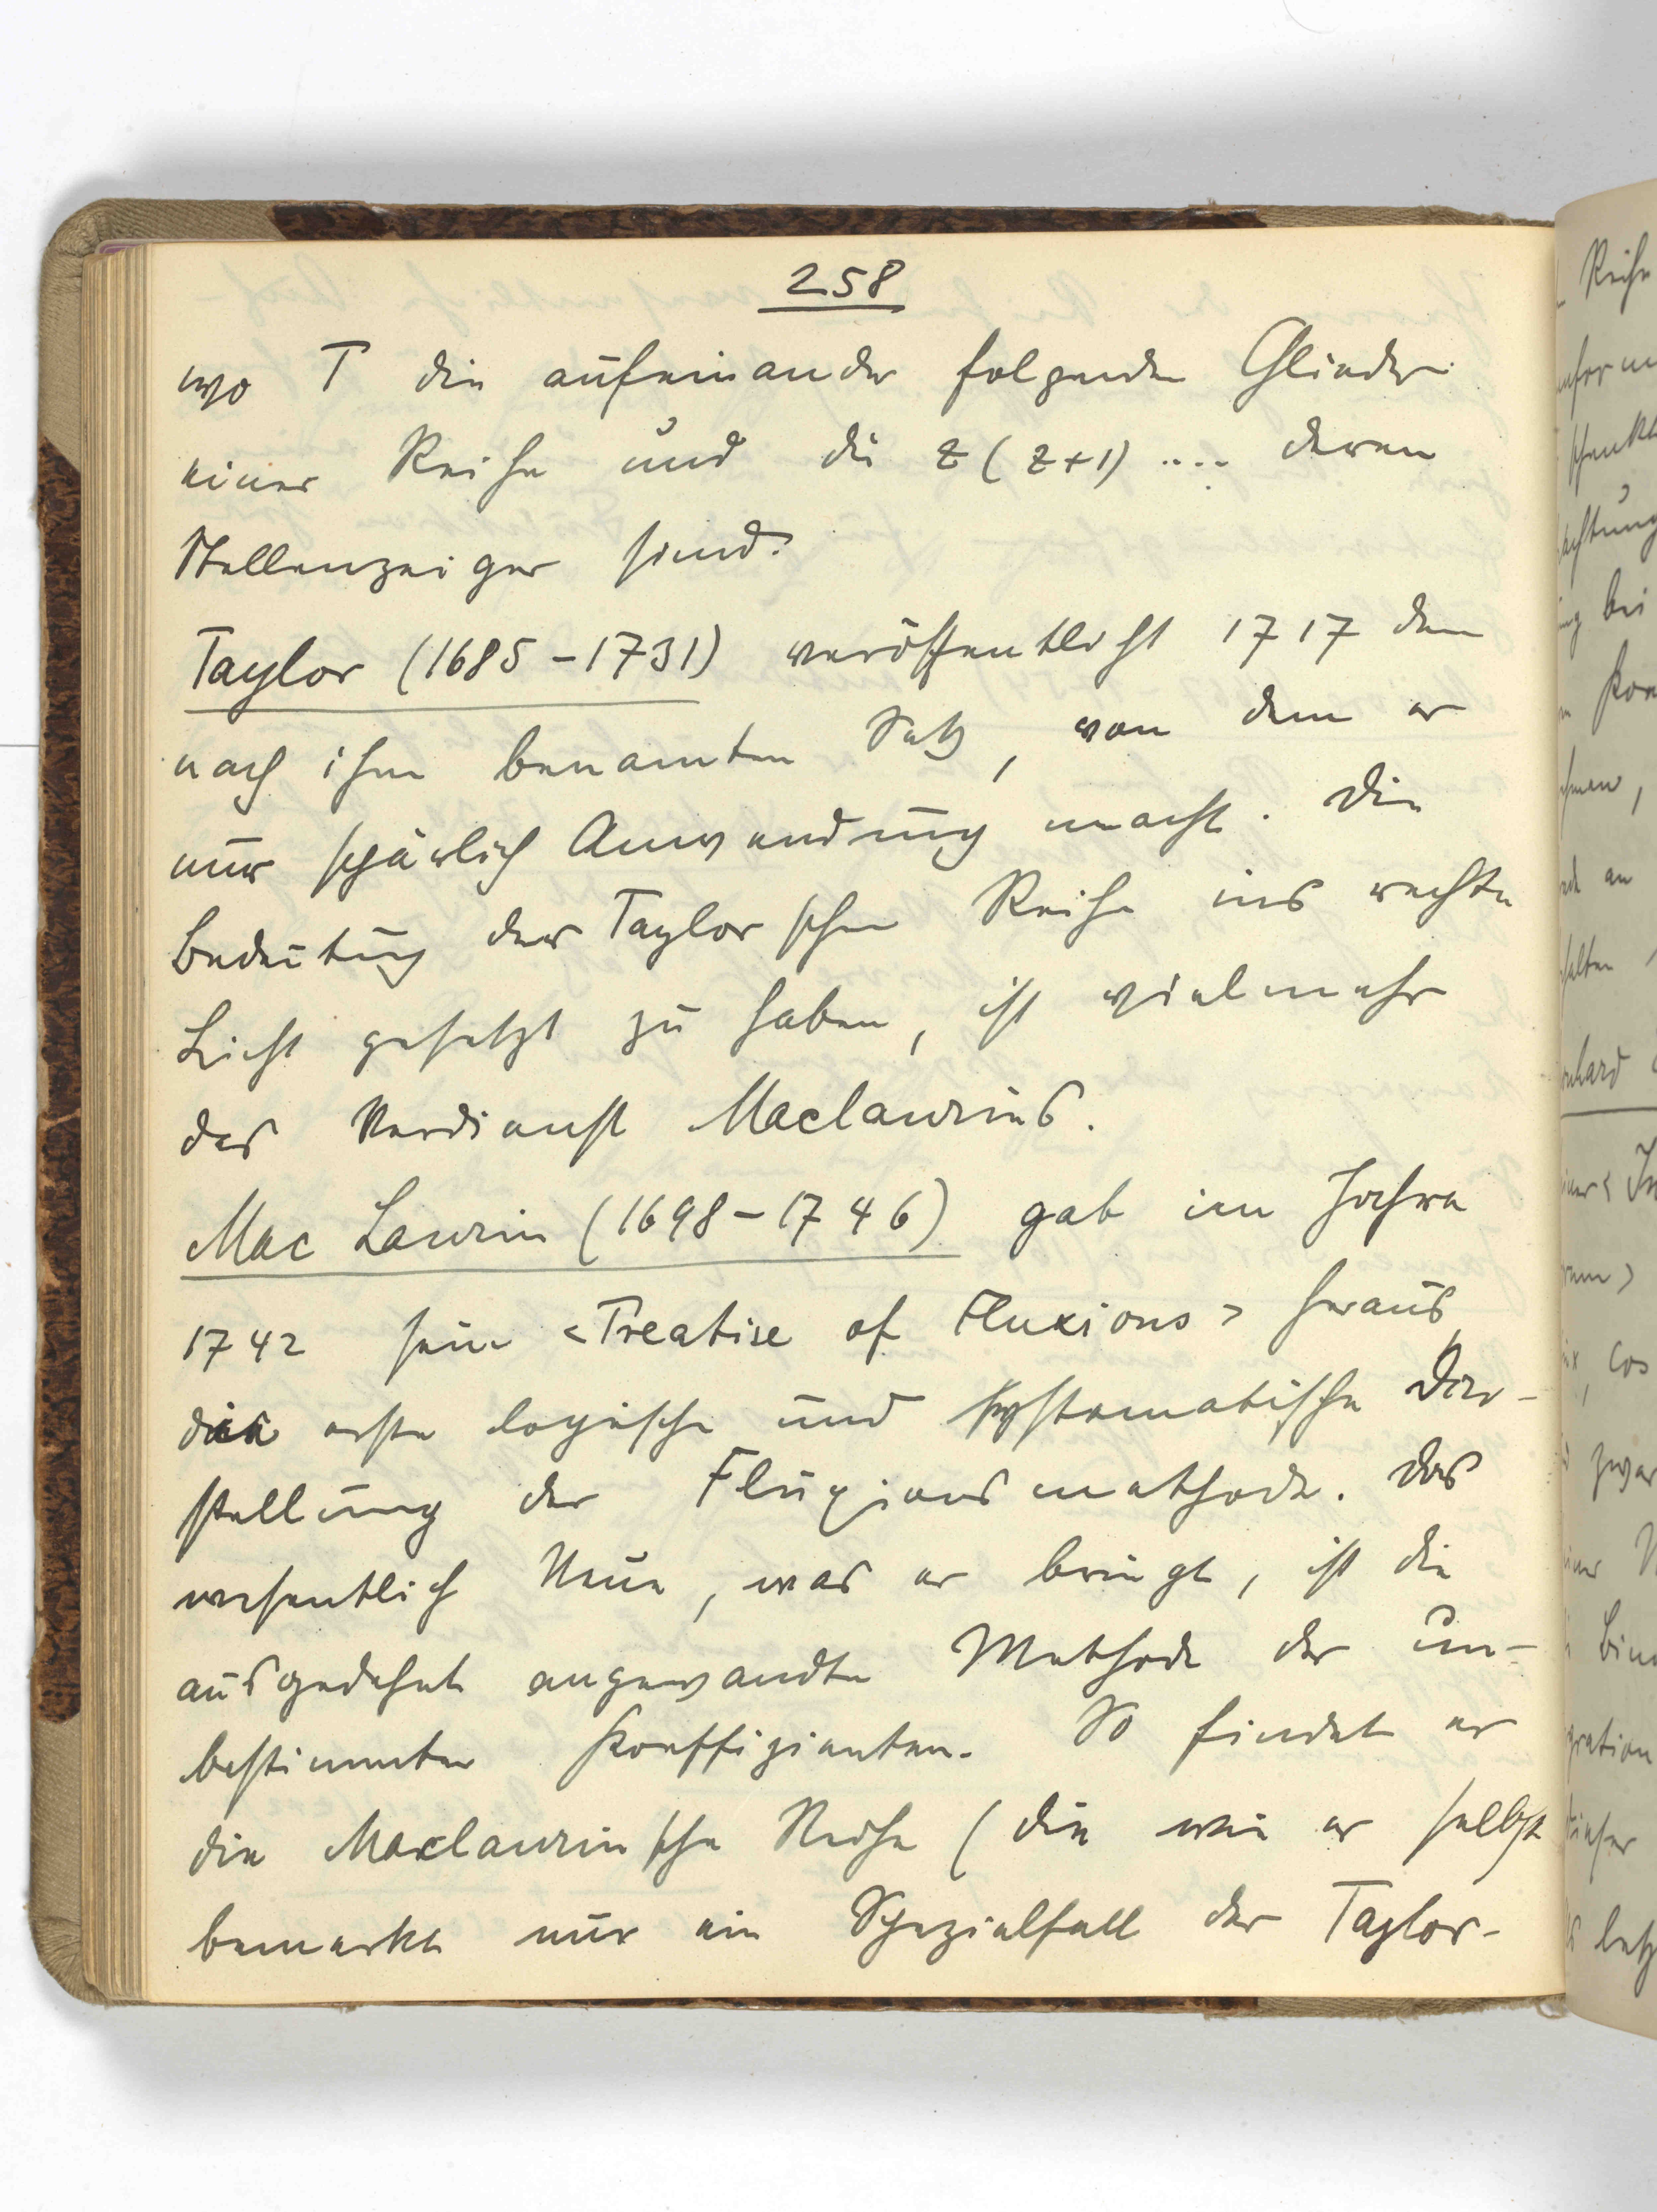 258
wo T die aufeinander folgenden Glieder
einer Reihe und die z(z+1).... deren
Stellenzeiger sind.
Taylor (1685-1731) veröffentlicht 1717 den
nach ihm benannten Satz, von dem er
nur spärlich Anwendung macht. Die
Bedeutung der Taylorschen Reihe ins rechte
Licht gesetzt zu haben, ist vielmehr
das Verdienst Maclaurins.
Mac Laurin (1698-1746) gab im Jahre
1742 sein <Treatise of Fluxions> heraus,
die erste logische und systematische Dar-
stellung der Fluxionsmethode. Das
wesentlich Neue, was er bringt, ist die
ausgedehnt angewandte Methode der un-
bestimmten Koeffizienten. So findet er
die Maclaurinsche Reihe (die wie er selbst
bemerkt nur ein Spezialfall der Taylor-